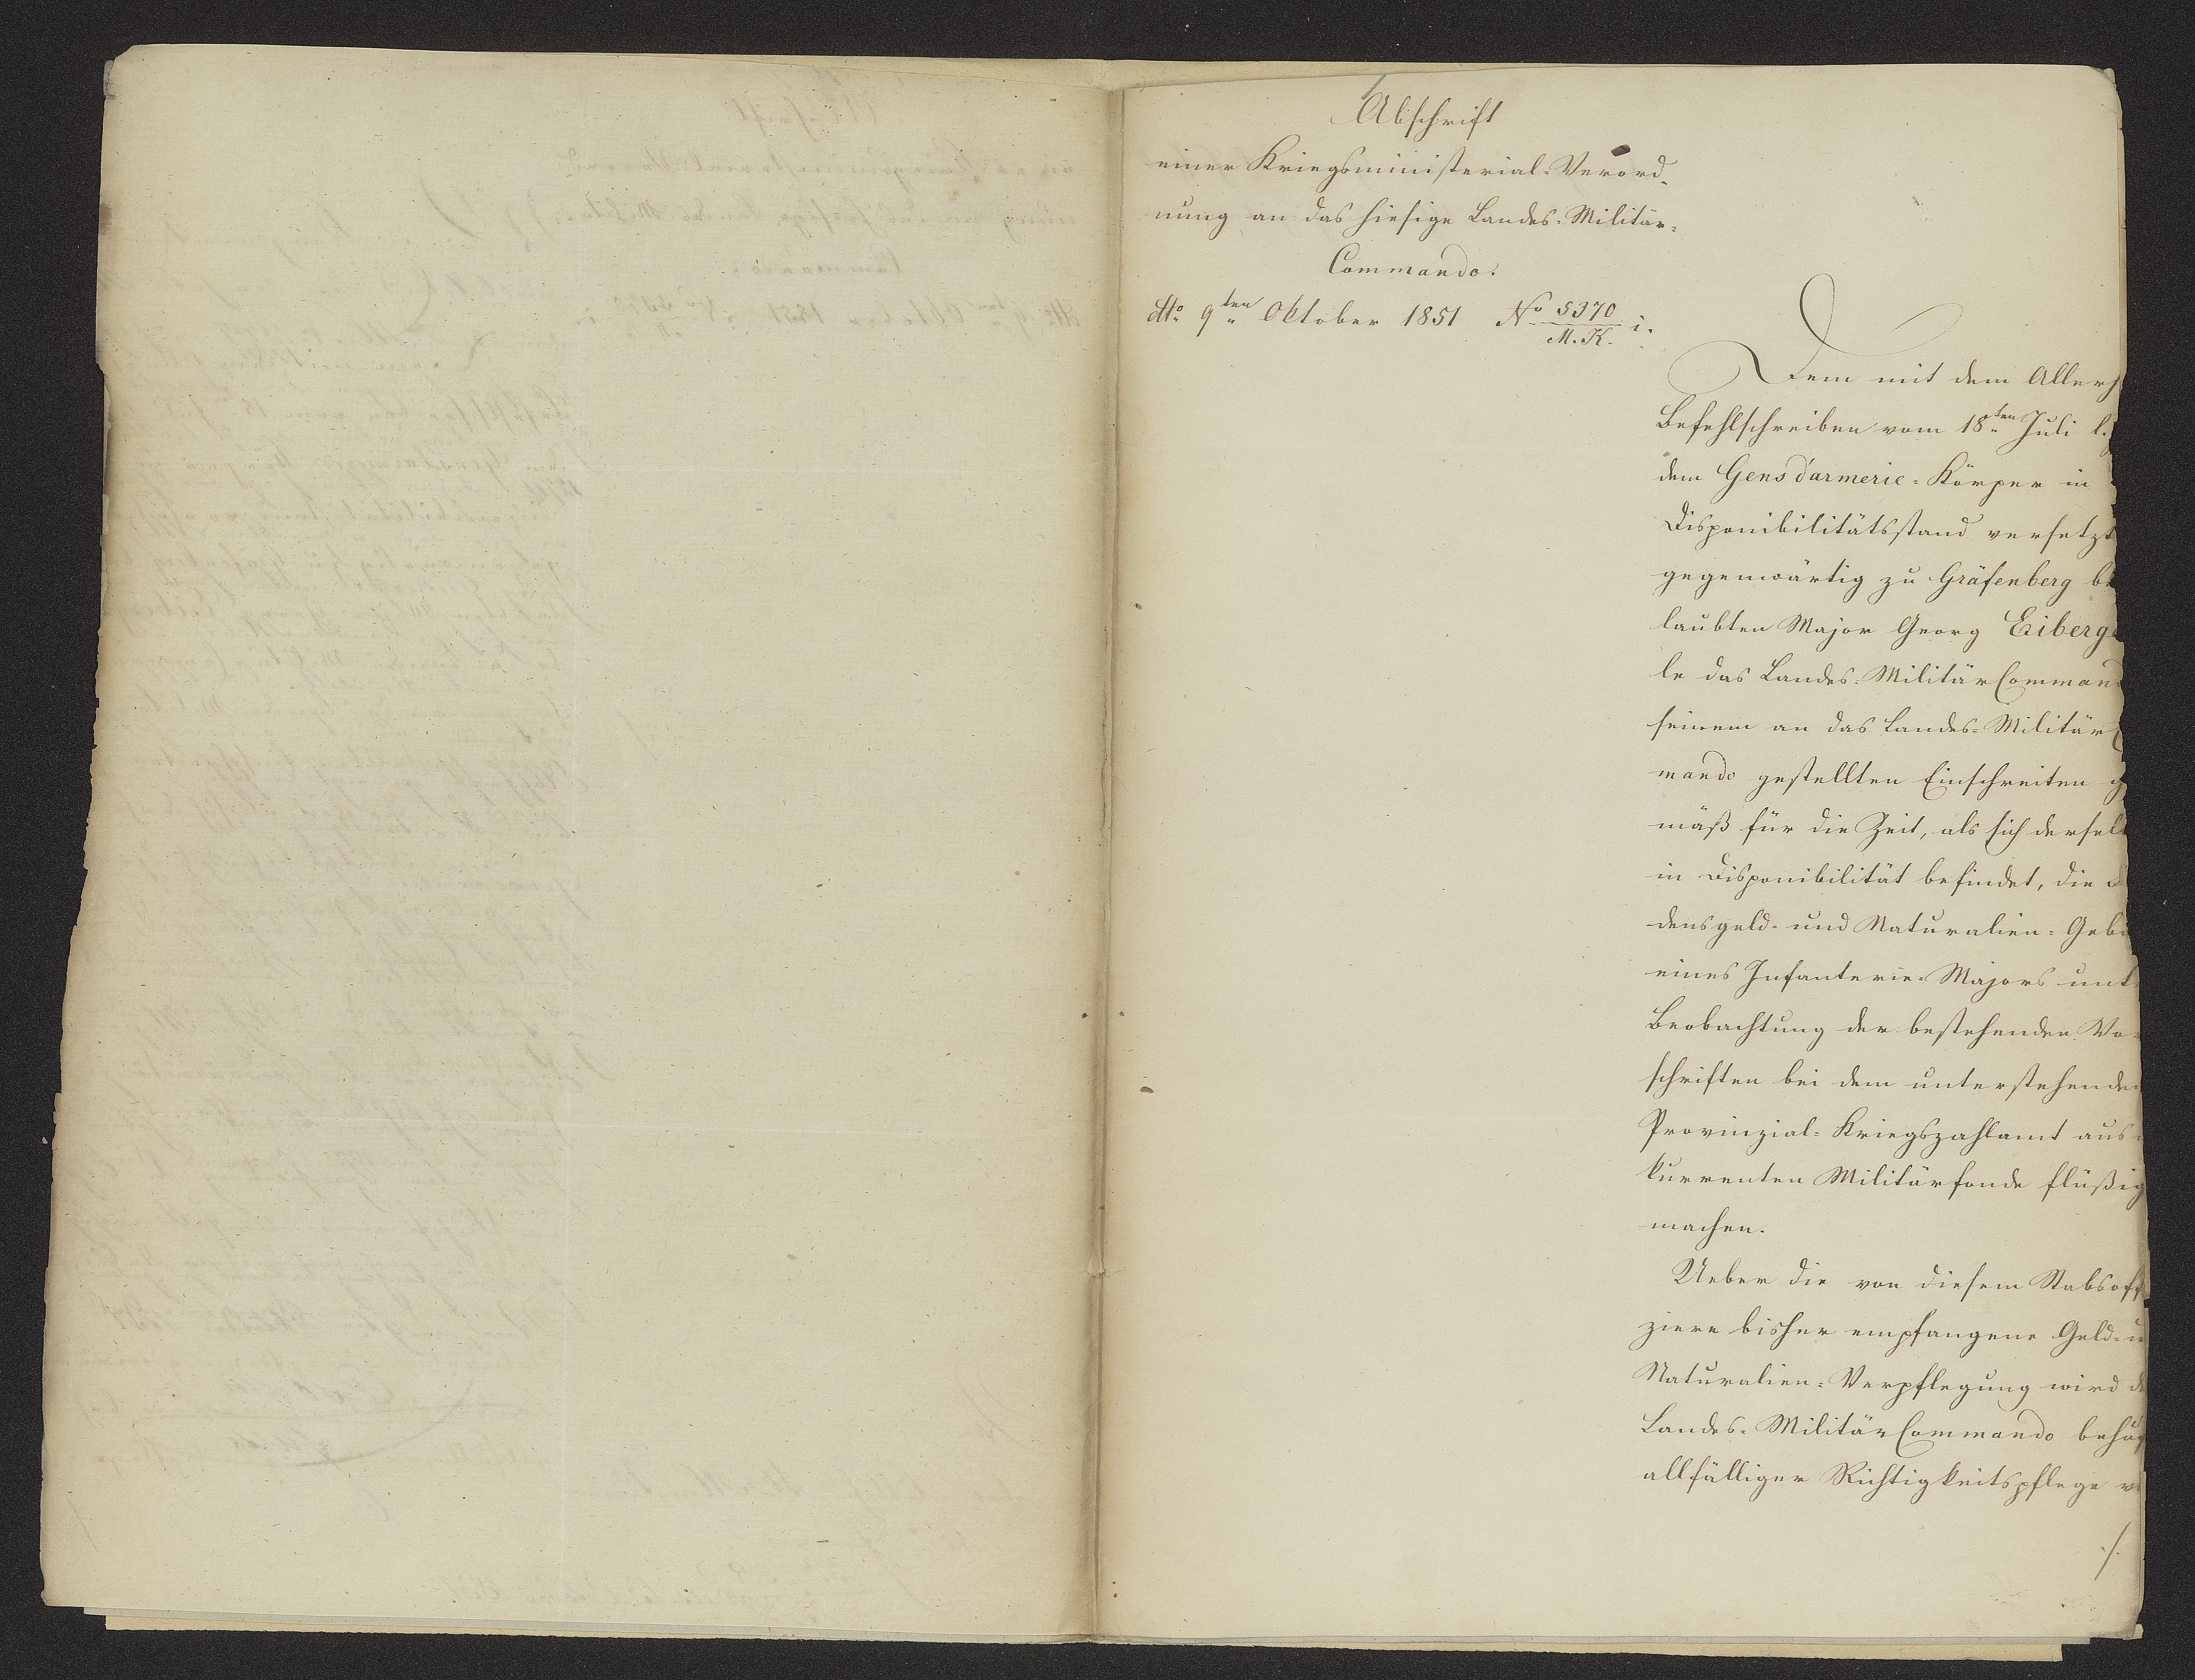 Abschrift
einer Kriegsministerial-Verord-
nung an das hiesige Landes-Militär-
Commando.
dto 9ten Oktober 1851 No 5370/M.K. i.
Dem mit dem Allerh
Befehlschreiben vom 18ten Juli l.
dem Gensdarmerie-Körper in
Disponibilitätsstand versetzt
gegenwärtig zu Gräfenberg be
laubten Major Georg Eiberg
le das Landes-Militär Comman
seinem an das Landes-Militär C
mando gestellten Einschreiten g
mäß für die Zeit, als sich dersel
in Disponibilität befindet, die
densgeld- und Naturalien-Geb
eines Infanterie-Majors unt
Beobachtung der bestehenden Vor
schriften bei dem unterstehenden
Provinzial-Kriegszahlamt aus
kurrenten Militärfonde flüßig
machen.
Ueber die von diesem Stabsoff
ziere bisher empfangene Geld- u
Naturalien-Verpflegung wird d
Landes-Militär Commando behuf
allfälliger Richtigkeitspflege v
./.